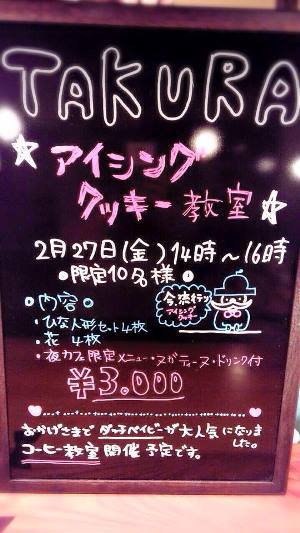 TAKURA
☆アイシング
クッキー教室☆
2月27日(金)14時〜16時
●限定10名様●
○内容○
・ひな人形セット4枚
・花 4枚
・夜カフェ限定メニュー・ヌガティーヌ・ドリンク付
¥3.000
今流行り
アイシング
クッキー
おかげさまでダッチベイビーが大人気になりました。
コーヒー教室開催予定です。